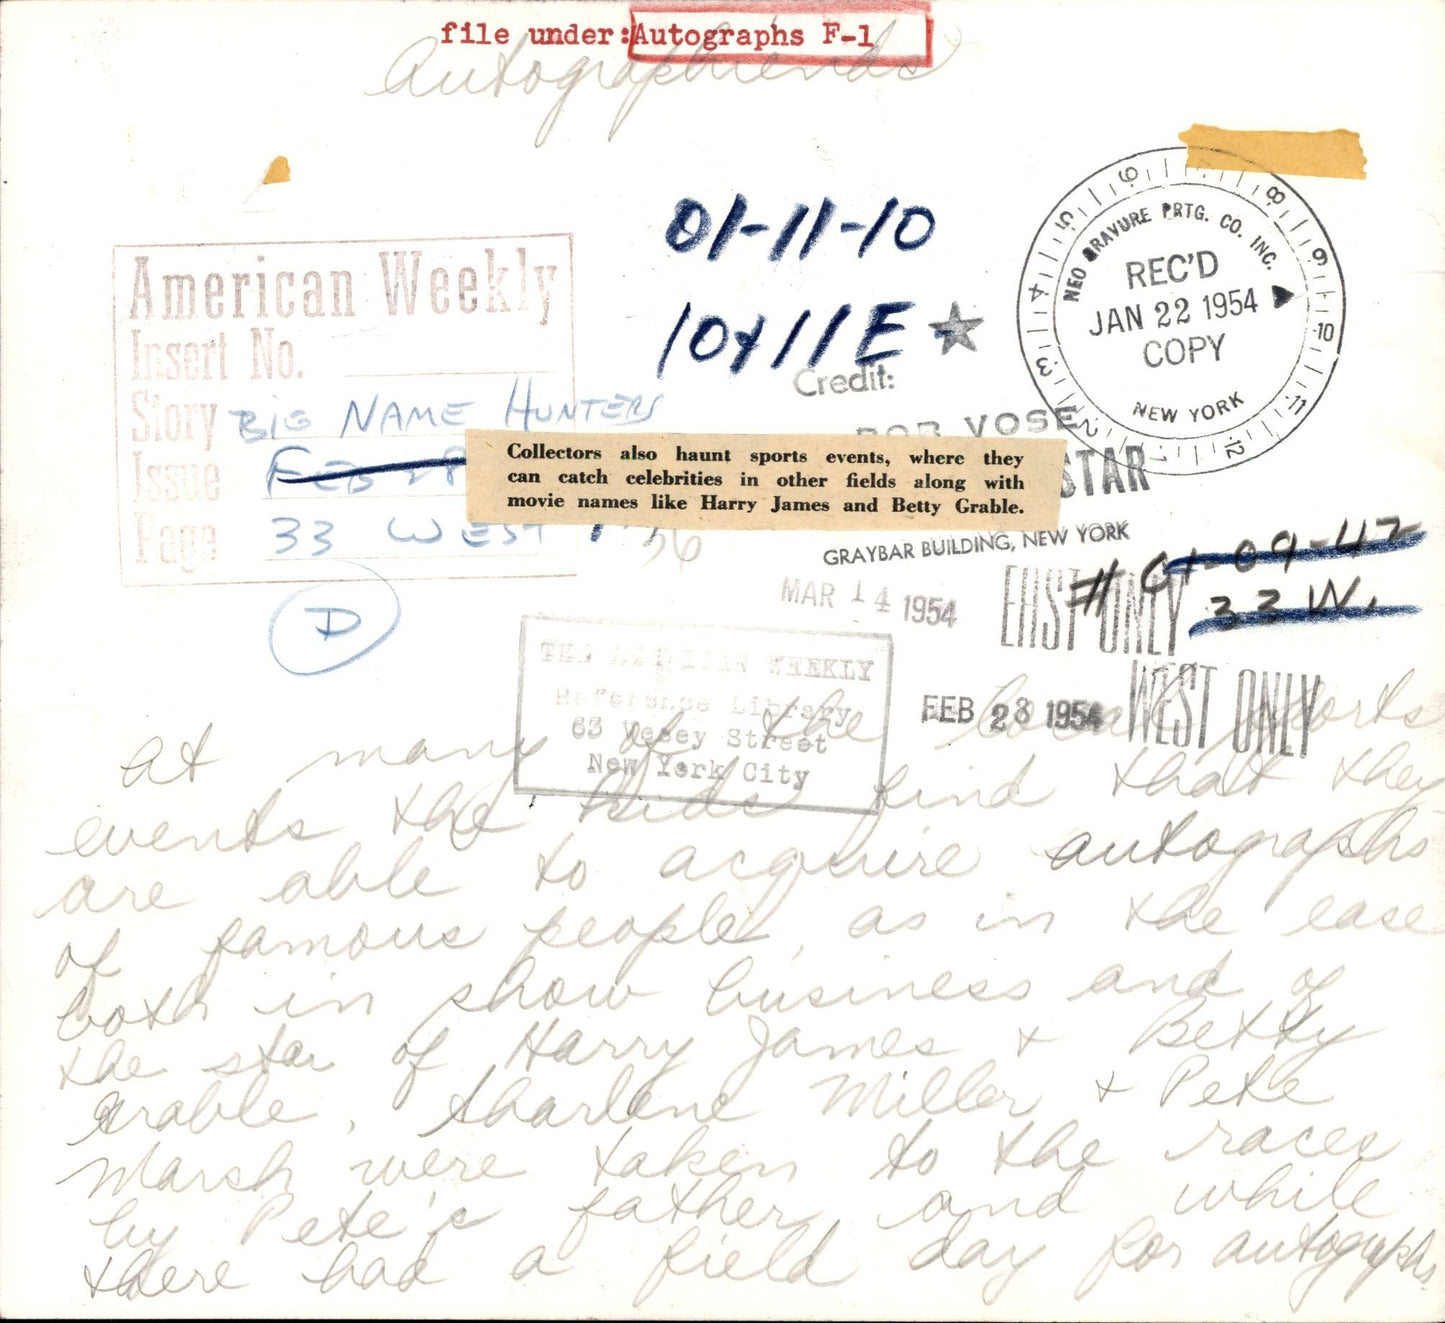 file under: Autographs F-1
Autographiends
01-11-10
10x11E
American Weekly
Insert No.
Story BIG NAME HUNTERS
Issue FEB 28
Page 33 WEST
D
NEO GRAVURE PRTG. CO. INC.
REC'D
JAN 22 1954
COPY
NEW YORK
1 2 3 4 5 6 8 9 10 11 12
Credit:
BOB VOSE
STAR
GRAYBAR BUILDING, NEW YORK
Collectors also haunt sports events, where they
can catch celebrities in other fields along with
movie names like Harry James and Betty Grable.
# 01-09-47
33 W.
MAR 14 1954
EAST ONLY
FEB 28 1954
WEST ONLY
THE AMERICAN WEEKLY
Reference Library
63 Vesey Street
New York City
at many of the local sports
events the kids find that they
are able to acquire autographs
of famous people, as in the case
both in show business and of
the star of Harry James + Betty
Grable, Sharlene Miller + Pete
Marsh were taken to the races
by Pete's father and while
there had a field day for autographs